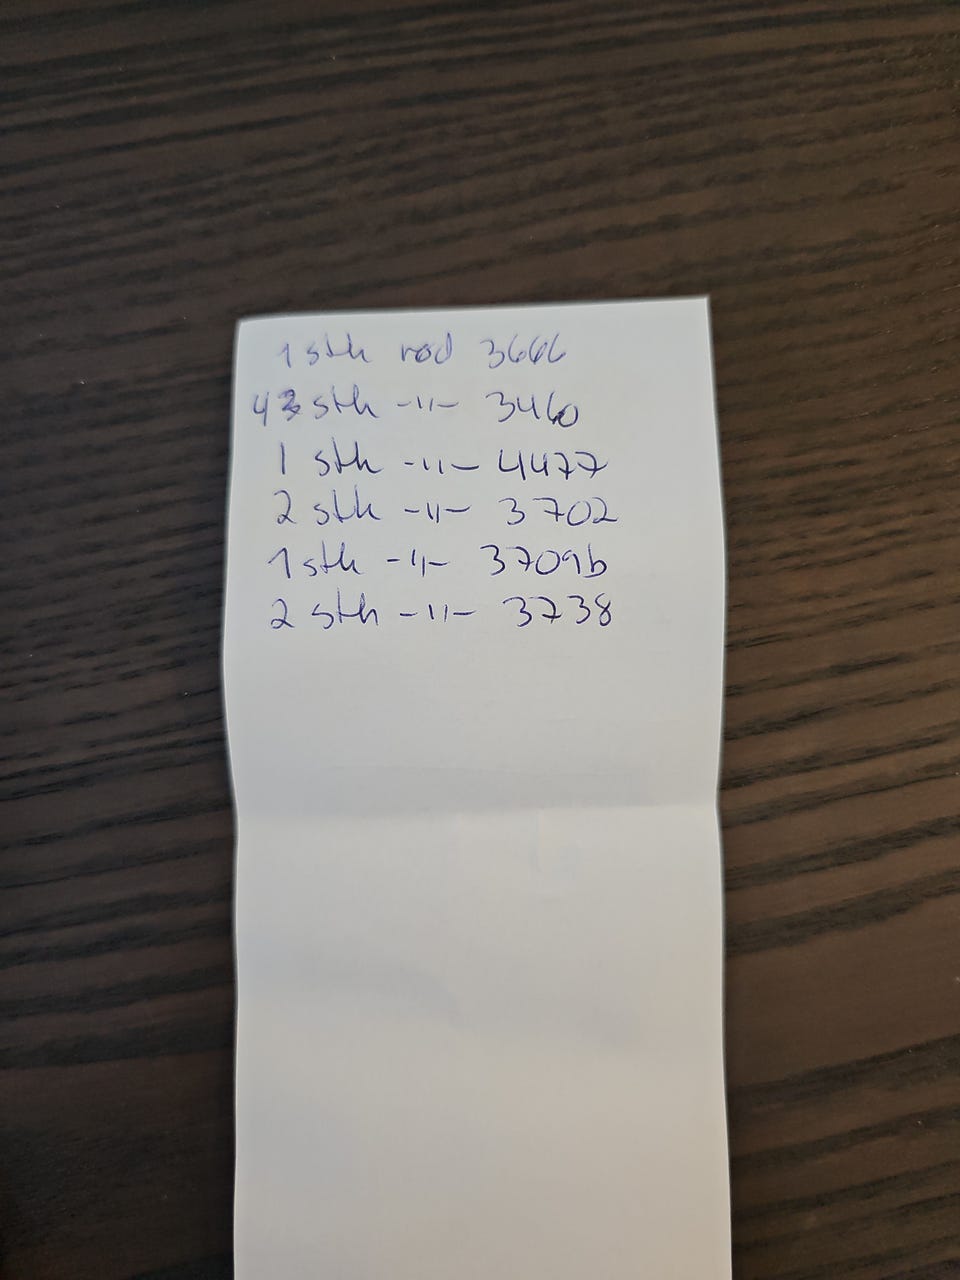 1 stk rød 3666
4 stk -11- 3460
1 stk -11- 4477
2 stk -11- 3702
1 stk -11- 3709b
2 stk -11- 3738